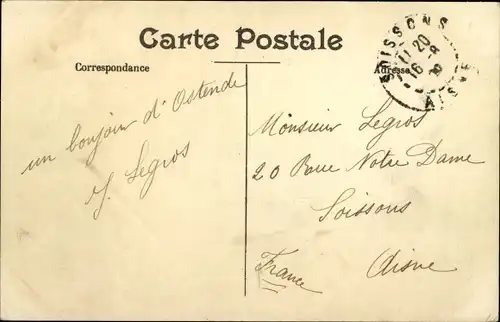 Carte Postale
Correspondance
Adresse
SOISSONS
11 20
16 - 8
AISNE
un bonjour d'Ostende
J. Legros
Monsieur Legros
20 Rue Notre Dame
Soissons
Aisne
France